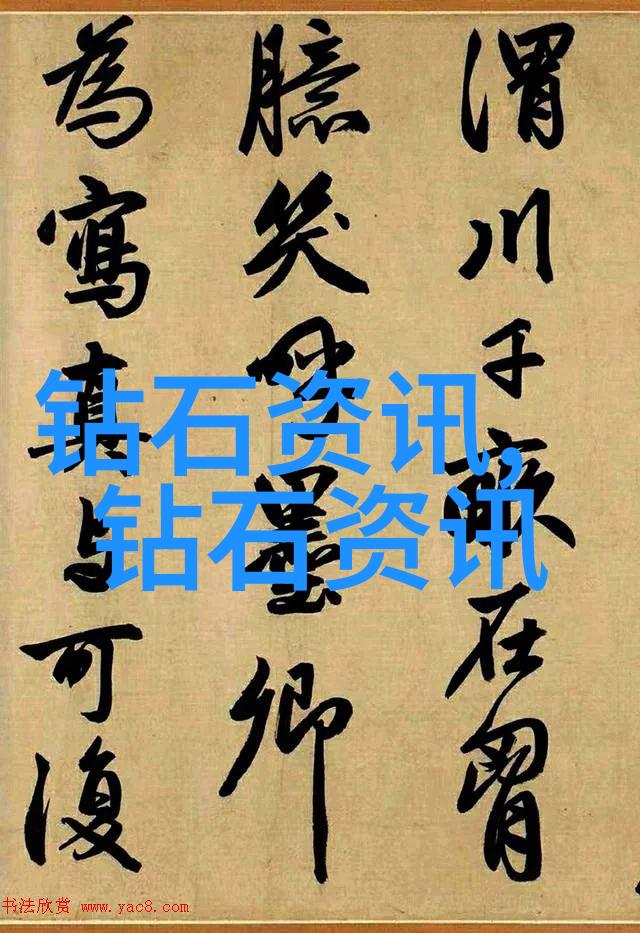 渭川千畝在胷
臆笑呼墨卿
為寫真与可復
钻石资讯,
钻石资讯
书法欣赏 www.yac8.com